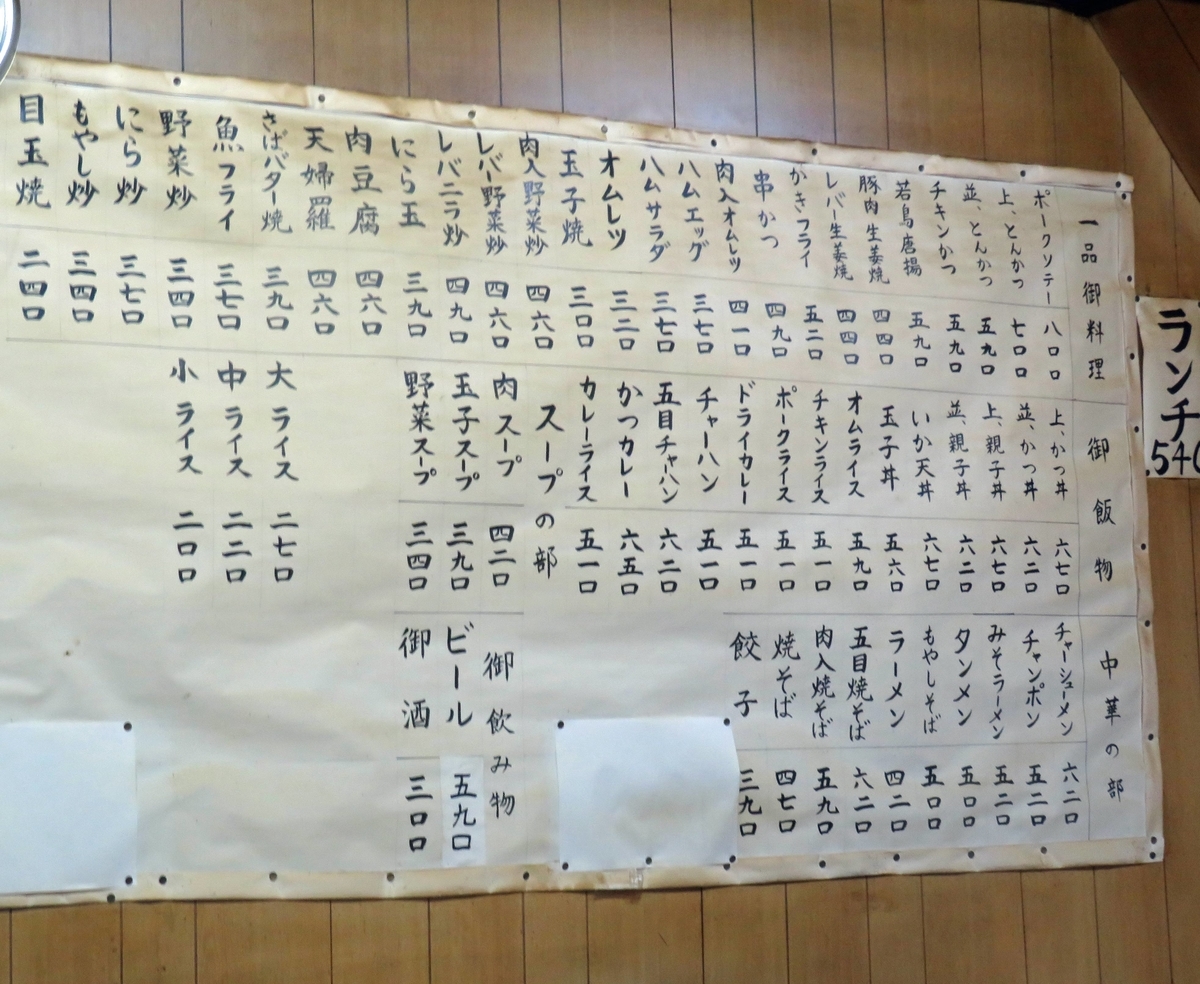 一品御料理
ポークソテー 八〇〇
上、とんかつ 七〇〇
並、とんかつ 五九〇
チキンかつ 五九〇
若鳥唐揚 五九〇
豚肉生姜焼 四四〇
レバー生姜焼 四四〇
かきフライ 五二〇
串かつ 四九〇
肉入オムレツ 四一〇
ハムエッグ 三七〇
ハムサラダ 三七〇
オムレツ 三二〇
玉子焼 三〇〇
肉入野菜炒 四六〇
レバー野菜炒 四六〇
レバニラ炒 四九〇
にら玉 三九〇
肉豆腐 四六〇
天婦羅 四六〇
さばバター焼 三九〇
魚フライ 三七〇
野菜炒 三四〇
にら炒 三七〇
もやし炒 三四〇
目玉焼 二四〇
御飯物
上、かつ丼 六七〇
並、かつ丼 六二〇
上、親子丼 六七〇
並、親子丼 六二〇
いか天丼 六七〇
玉子丼 五六〇
オムライス 五九〇
チキンライス 五一〇
ポークライス 五一〇
ドライカレー 五一〇
チャーハン 五一〇
五目チャーハン 六二〇
かつカレー 六五〇
カレーライス 五一〇
スープの部
肉スープ 四二〇
玉子スープ 三九〇
野菜スープ 三四〇
大ライス 二七〇
中ライス 二二〇
小ライス 二〇〇
中華の部
チャーシューメン 六二〇
チャンポン 五二〇
みそラーメン 五二〇
タンメン 五〇〇
もやしそば 五〇〇
ラーメン 四二〇
五目焼そば 六二〇
肉入焼そば 五九〇
焼そば 四七〇
餃子 三九〇
御飲み物
ビール 五九〇
御酒 三〇〇
ランチ
540